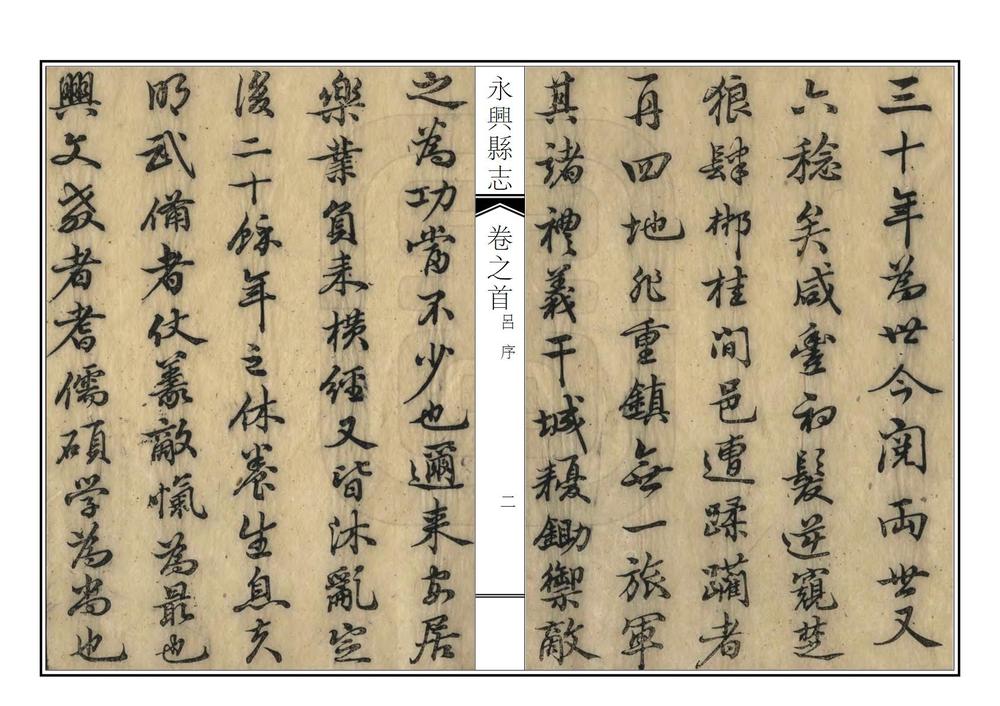 三十年為世今閱兩世又
六稔矣咸豐初髮逆窺楚
狼肆郴桂間邑遭蹂躪者
再四地非重鎮無一旅軍
其諸禮義干城耰鋤禦敵
永興縣志
卷之首
呂序
二
之為功當不少也邇来安居
樂業負耒横經又皆沐亂定
後二十餘年之休養生息夫
明武備者仗義敵愾為最也
興文教者耆儒碩学為當也